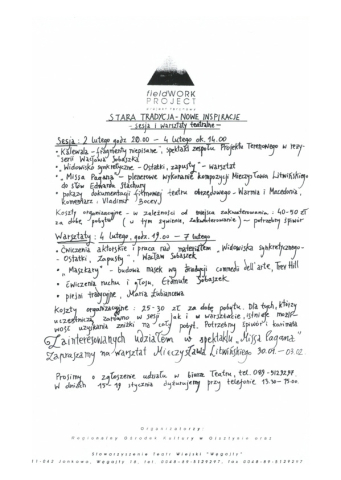 fieldWORK
PROJECT
project terenowy
STARA TRADYCJA - NOWE INSPIRACJE
- sesja i warsztaty teatralne -
Sesja: 2 lutego godz. 20.00 - 4 lutego ok. 14.00
• "Kalewala - fragmenty niepisane", spektakl zespołu Projektu Terenowego w reży-
serii Wacława Sobaszka
• "Widowisko synkretyczne - Ostatki, zapusty" - warsztat
• "Missa Pagana" - plenerowe wykonanie kompozycji Mieczysława Litwińskiego
do słów Edwarda Stachury
• pokazy dokumentacji filmowej teatru obrzędowego - Warmia i Macedonia,
komentarz: Vladimir Bocev
Koszty organizacyjne - w zależności od miejsca zakwaterowania: 40-50 zł
za dobę pobytu (w tym żywienie, zakwaterowanie) - potrzebny śpiwór
Warsztaty: 4 lutego, godz. 19.00 - 7 lutego
• ćwiczenia aktorskie i praca nad materiałem "Widowiska synkretycznego -
- Ostatki, Zapusty", Wacław Sobaszek
• "Maszkary" - budowa masek wg tradycji commedii dell'arte, Trev Hill
• ćwiczenia ruchu i głosu, Erdmute Sobaszek
• pieśni tradycyjne, Maria Łubiancewa
Koszty organizacyjne: 25-30 zł za dobę pobytu. Dla tych, którzy
uczestniczą zarówno w sesji jak i w warsztacie, istnieje możli-
wość uzyskania zniżki na cały pobyt. Potrzebny śpiwór i karimata
Zainteresowanych udziałem w spektaklu "Missa Pagana"
zapraszamy na warsztat Mieczysława Litwińskiego 30.01 - 03.02.
Prosimy o zgłoszenie udziału w biurze Teatru, tel. 089-5129297.
W dniach 15-19 stycznia dyżurujemy przy telefonie 13.30 - 15.00.
Organizatorzy:
Regionalny Ośrodek Kultury w Olsztynie oraz
Stowarzyszenie Teatr Wiejski "Węgajty"
11-042 Jonkowo, Węgajty 18, tel. 0048-89-5129297, fax 0048-89-5129297